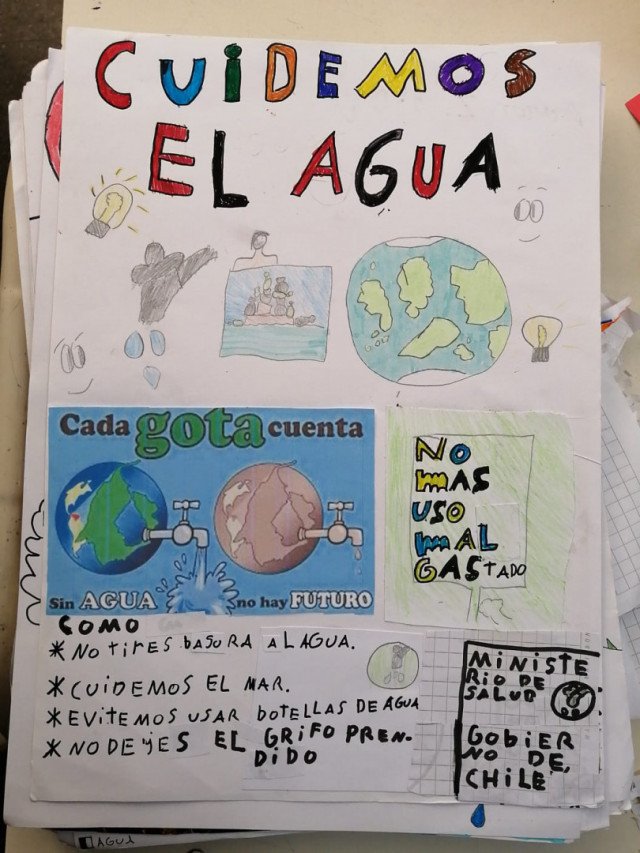 CUIDEMOS
EL AGUA
Cada gota cuenta
Sin AGUA no hay FUTURO
NO
MAS
USO
MAL
GASTADO
COMO
* NO tires basura al AGUA.
* CUIDEMOS EL MAR.
* EVITEMOS USAR BOTELLAS DE AGUA
* NO DEJES EL GRIFO PREN-
DIDO
MINISTE
RIO DE
SALUD
GOBIER
NO DE,
CHILE
AGUA